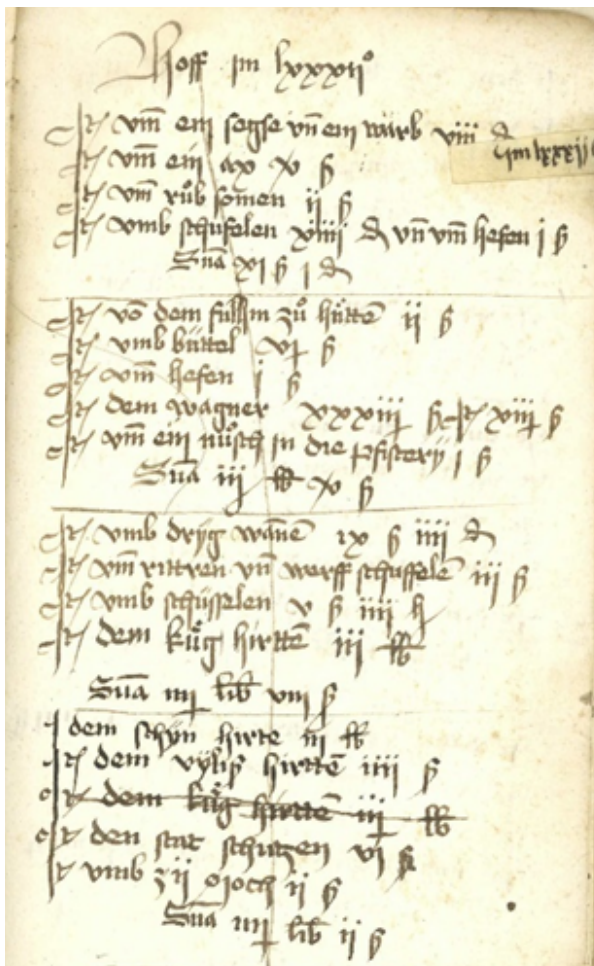 Hoff im lxxxii°
It vm̄ ein segse vn̄ ein warb viii d
im lxxxij
It vm̄ ein ax x ß
It vm̄ růb somen ii ß
It vmb schufelen xiiii d vn̄ vm̄ hefen i ß
Sūa xi ß i d
It vō dem fullin zů hůttē ii ß
It vmb büttel vj ß
It vm̄ hefen i ß
It dem wagner xxxiiij ß It xiiij ß
It vm̄ ein nůsch in die pfisterij i ß
Sūa iij lb x ß
It vmb dryg wānē ix ß iiii d
It vm̄ rittren vn̄ werff schuffelē iii ß
It vmb schüsselen v ß iiii h
It dem kůg hirttē iij lb
Sūa iiij lib viii ß
dem schwin hirte iij lb
It dem hirttē iiij ß
It dem kůg hirttē iij lb
It den stat schutzen vi ß
It vmb zij ojoch ii ß
Sūa iiij lib ij ß